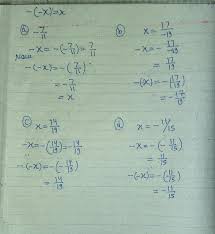 -(-x)=x
(a) -7/11
-x = -(-7/11) = 7/11
now
-(-x) = -(7/11)
= -7/11
= x
(b) x = 17/-19
-x = -17/-19
= 17/19
-(-x) = -(17/19)
= -17/19
(c) x = 14/19
-x = -(-14/19) = 14/19
-(-x) = -(-14/19)
= 14/19
(d) x = -11/15
-x = -(-11/15)
= 11/15
-(-x) = -(11/15)
= -11/15